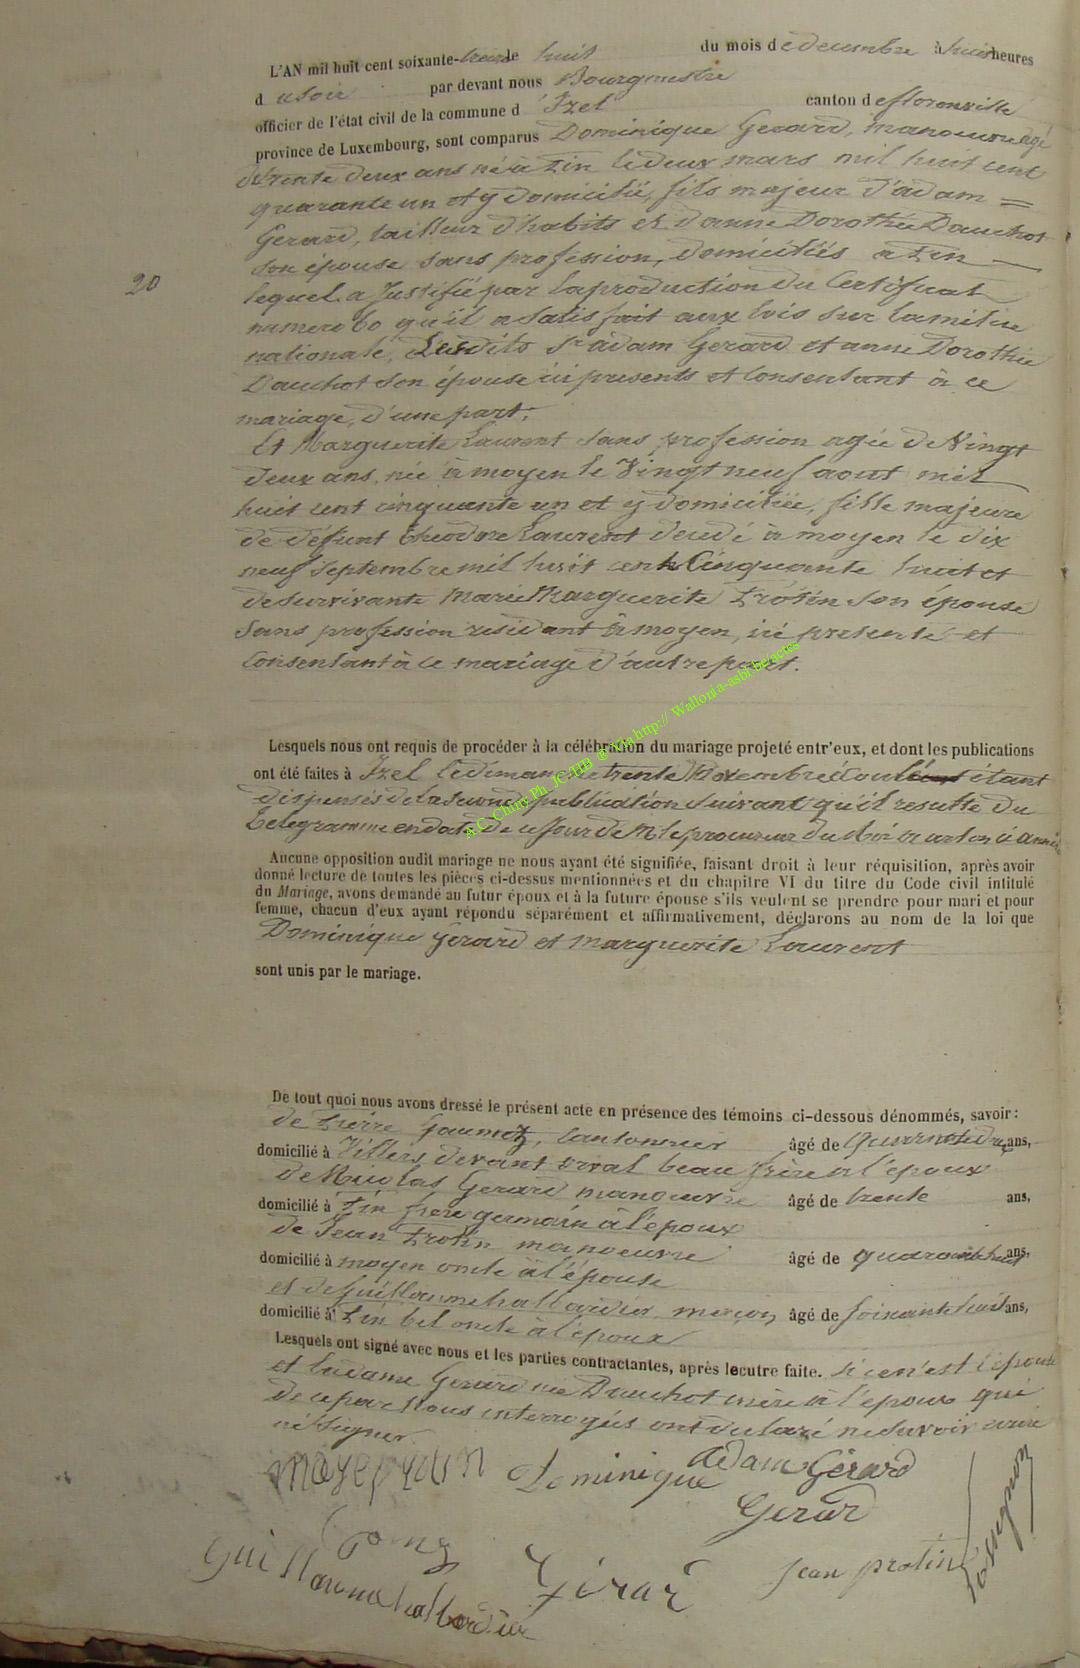 L'AN mil huit cent soixante-treize le huit du mois de decembre à huit heures
d u soir par devant nous Bourgmestre
officier de l'état civil de la commune d 'Izel canton de florenville
province de Luxembourg, sont comparus Dominique Gerard, manoeuvre agé
de trente deux ans né à Pin le deux mars mil huit cent
quarante un et y domicilié, fils majeur d'adam =
Gerard, tailleur d'habits et d'anne Dorothée Dauchot
son épouse sans profession, domiciliés a Pin
lequel a Justifié par la production du Certificat
numero 60 qu'il a satisfait aux lois sur la milice
nationale, Lesdits Sr adam Gerard et anne Dorothée
Dauchot son épouse ici presents et consentant à ce
mariage, d'une part;
20
Et Marguerite Laurent sans profession agée de Vingt
deux ans, née à moyen le Vingt neuf aout mil
huit cent cinquante un et y domiciliée, fille majeure
de défunt théodore Laurent décédé à moyen le dix
neuf Septembre mil huit cent Cinquante huit et
de survivante marie Marguerite Protin son epouse
Sans profession résidant à moyen, ici presente et
Consentant à ce mariage d'autre part.
A.C. Chiny Ph. JC HB @ Via http:// Wallonia-asbl.be/actes
Lesquels nous ont requis de procéder à la célébration du mariage projeté entr'eux, et dont les publications
ont été faites à Izel le dimanche trente Novembre écoulé étant
dispensés de la seconde publication suivant qu'il resulte du
telegramme en date de ce jour de Mr le procureur du Roi à arlon
Aucune opposition audit mariage ne nous ayant été signifiée, faisant droit à leur réquisition, après avoir
donné lecture de toutes les pièces ci-dessus mentionnées et du chapitre VI du titre du Code civil intitulé
du Mariage, avons demandé au futur époux et à la future épouse s'ils veulent se prendre pour mari et pour
femme, chacun d'eux ayant répondu séparément et affirmativement, déclarons au nom de la loi que
Dominique Gerard et Marguerite Laurent
sont unis par le mariage.
De tout quoi nous avons dressé le présent acte en présence des témoins ci-dessous dénommés, savoir:
de Pierre Goumetz, cantonnier âgé de quarante ans,
domicilié à Villers devant orval beau frère à l'époux
de Nicolas Gerard manoeuvre âgé de trente ans,
domicilié à Pin frere germain à l'epoux
de Jean Protin manoeuvre âgé de quarante huit ans,
domicilié à moyen oncle à l'épouse
et de Guillaume hallardier maçon âgé de Soixante huit ans,
domicilié à Pin bel oncle à l'epoux
Lesquels ont signé avec nous et les parties contractantes, après lecutre faite. Si ce n'est l'épouse
et la dame Gerard née Dauchot mère à l'epoux qui
de ce par Nous interrogés ont declaré ne savoir écrire
ni Signer.
Dominique adam Gérard
Gerard
Gérard Jean protin
Guillaume hallardier